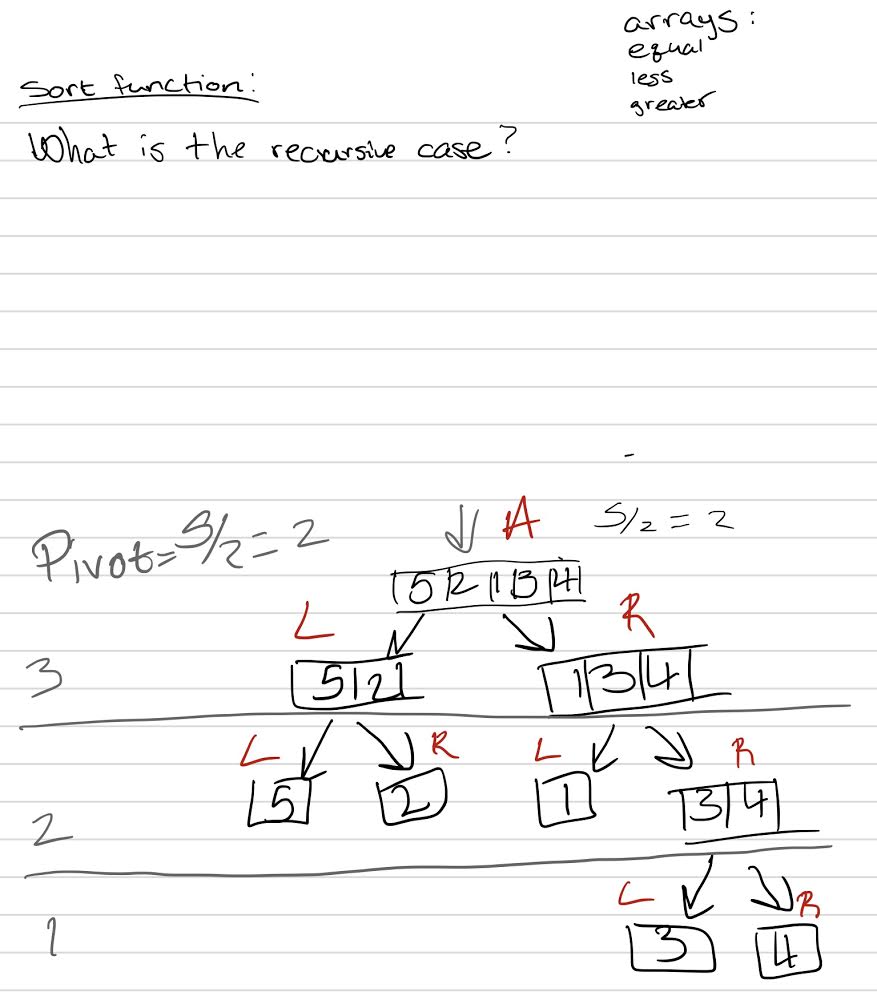 arrays:
equal
less
greater
Sort function:
What is the recursive case?
Pivot=5/2=2
A
5/2=2
5 2 1 3 4
L
R
3
5 2
1 3 4
L
R
L
R
5
2
1
3 4
2
L
R
1
3
4